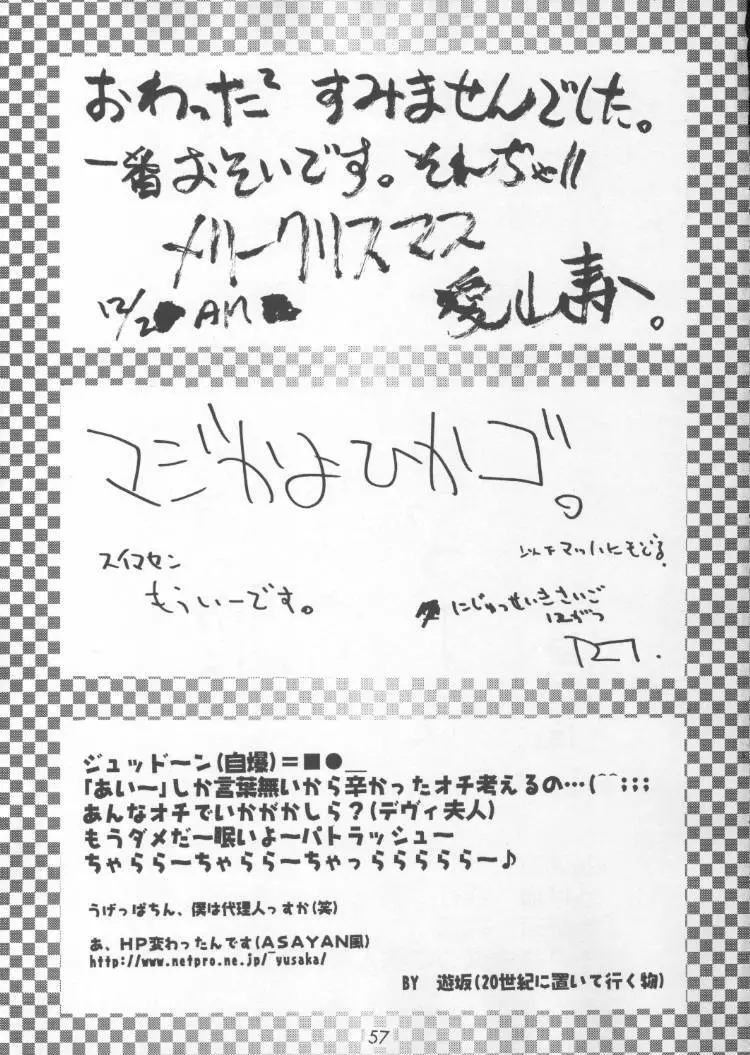 おわった〜 すみませんでした。
一番おそいです。それぢゃ!!
メリークリスマス
12/2 AM
愛山寿へ。
マジかよひかゴ。
スイマセン
もういーです。
にもどる。
にじゅっせいきさいご
12がつ
ジュッドーン(自爆)=■●＿
「あい～」しか言葉無いから辛かったオチ考えるの…(^^;;;
あんなオチでいかがかしら?(デヴィ夫人)
もうダメだ～眠いよ～パトラッシュ～
ちゃらら～ちゃらら～ちゃっらららららら～♪
うげっぱちん、僕は代理人っすか(笑)
あ、HP変わったんです(ASAYAN風)
http://www.netpro.ne.jp/~yusaka/
BY 遊坂(20世紀に置いて行く物)
57